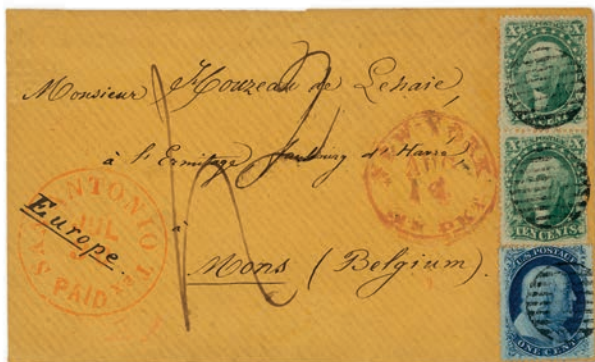 Monsieur Houzeau de Lehaie,
à l'Ermitage faubourg d'Havré,
à
Mons (Belgium).
Europe.
SAN ANTONIO Tex
JUL
PAID
NEW-YORK
PKT
X X
TEN CENTS
X X
TEN CENTS
U.S. POSTAGE
ONE CENT